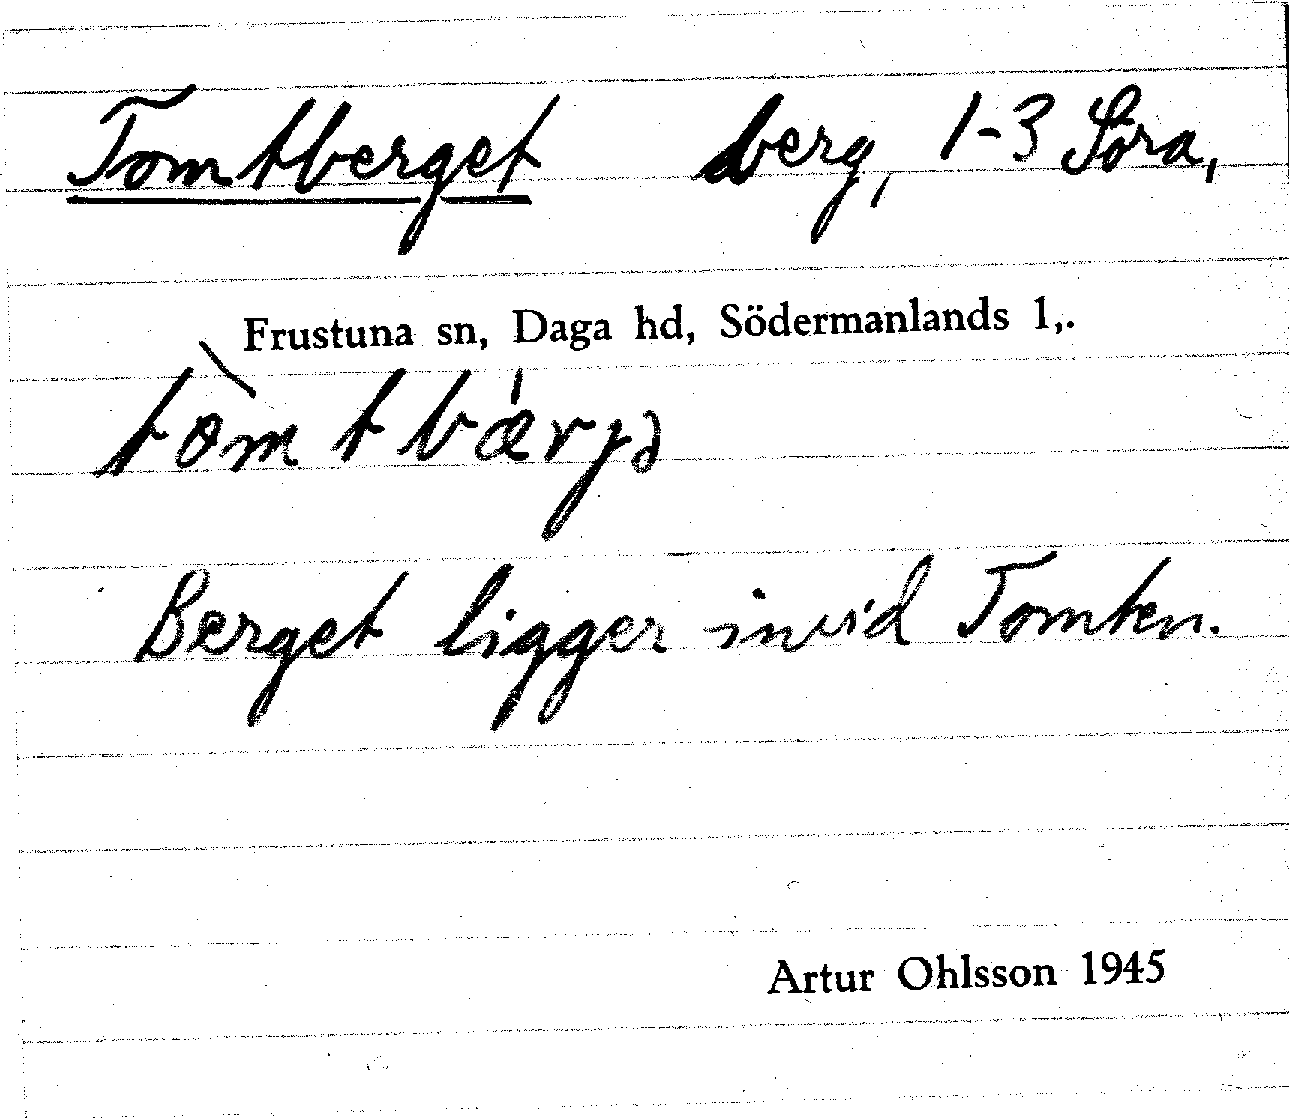 Tomtberget berg, 1-3 Söra,
Frustuna sn, Daga hd, Södermanlands l,.
tòmtbǽrjə
Berget ligger invid Tomten.
Artur Ohlsson 1945